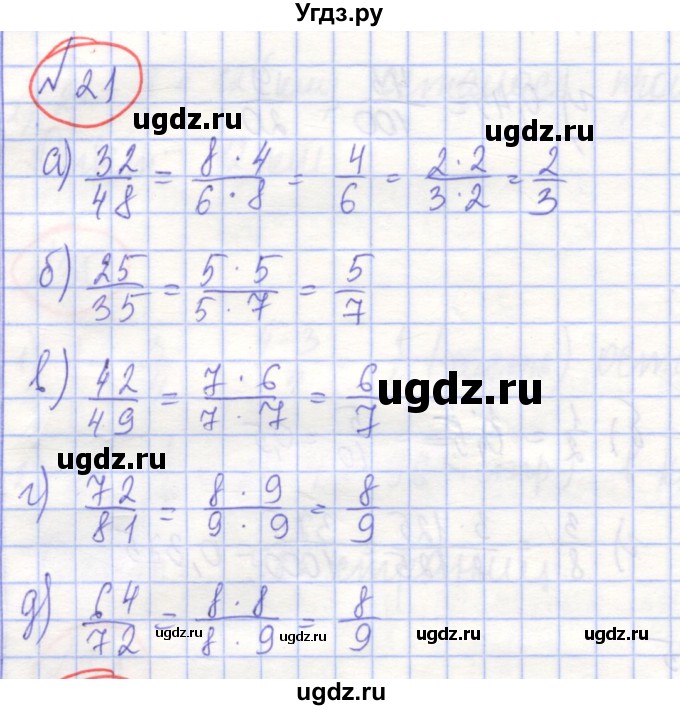 Угдз.ру
№ 21
ugdz.ru
ugdz.ru
а) 32/48 = 8 · 4/6 · 8 = 4/6 = 2 · 2/3 · 2 = 2/3
б) 25/35 = 5 · 5/5 · 7 = 5/7
в) 42/49 = 7 · 6/7 · 7 = 6/7
ugdz.ru
ugdz.ru
г) 72/81 = 8 · 9/9 · 9 = 8/9
д) 64/72 = 8 · 8/8 · 9 = 8/9
ugdz.ru ugdz.ru ugdz.ru
ugdz.ru